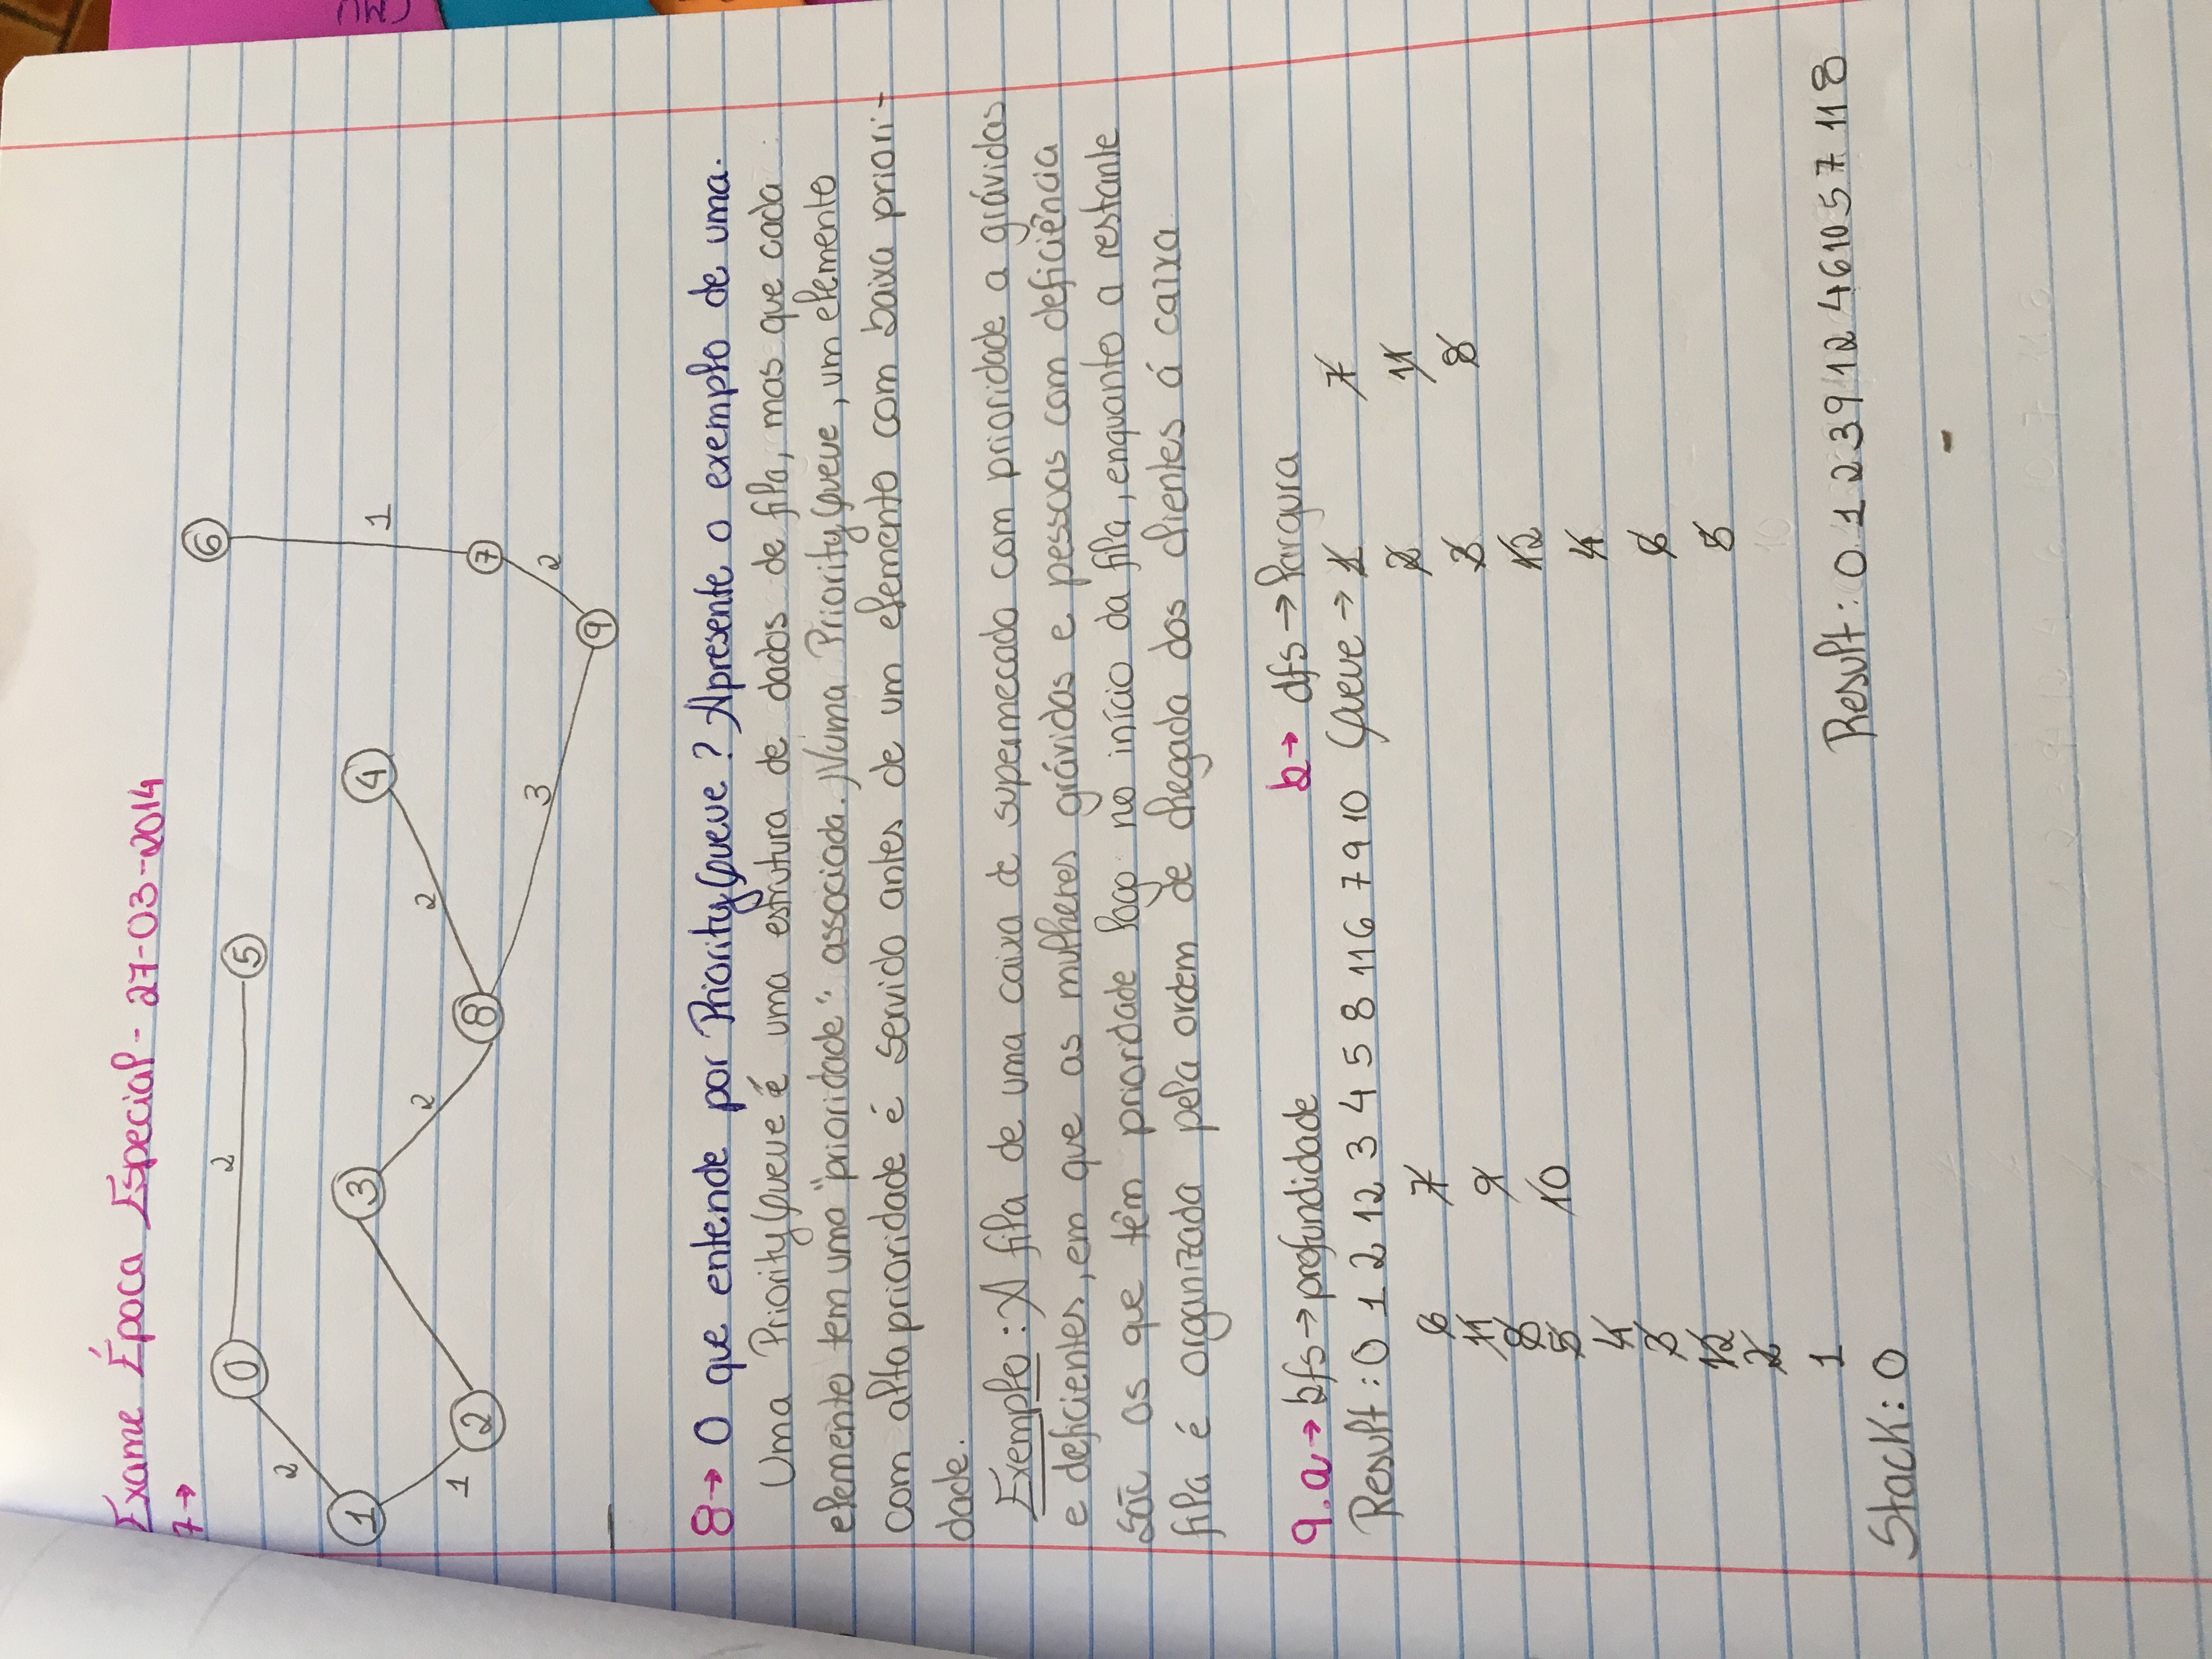 Exame Época Especial - 27-03-2014
7→
6
0 2 5
2
1 3 4
2 2 1
1 2 8 7
3 2
9
8→ O que entende por PriorityQueue? Apresente o exemplo de uma.
Uma PriorityQueue é uma estrutura de dados de fila, mas que cada
elemento tem uma "prioridade" associada. Numa PriorityQueue, um elemento
com alta prioridade é servido antes de um elemento com baixa priori-
dade.
Exemplo: A fila de uma caixa de supermecado com prioridade a grávidas
e deficientes, em que as mulheres grávidas e pessoas com deficiência
são os que têm prioridade logo no início da fila, enquanto a restante
fila é organizada pela ordem de chegada dos clientes á caixa
9.a→ bfs→profundidade b→ dfs→largura
Result: 0 1 2 12 3 4 5 8 11 6 7 9 10 Queue → 1 7
6 7 2 11
11 9 3 8
8 12
5 10 4
4 6
3 5
12 10
2
1
Result: 0 1 2 3 9 12 4 6 10 5 7 11 8
Stack: 0